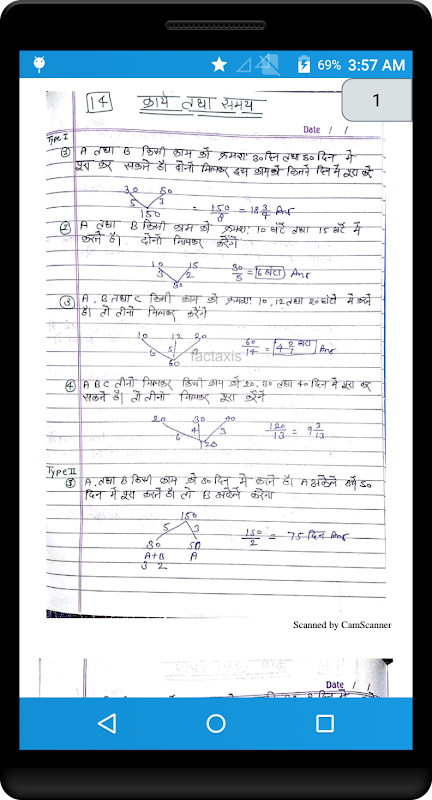 69% 3:57 AM
1
14 कार्य तथा समय
Date / /
Type I
① A तथा B किसी काम को क्रमशः 30 दिन तथा 50 दिन में
पूरा कर सकते है। दोनो मिलकर इस काम को कितने दिन में पूरा करे
30 50
5 3
150
= 150/8 = 18 3/4 Ans
② A तथा B किसी काम को क्रमशः 10 घंटे तथा 15 घंटे में
करते है। दोनो मिलकर करेंगे
10 15
3 2
30
30/5 = 6 घंटा Ans
③ A, B तथा C किसी काम को क्रमशः 10, 12 तथा 20 घंटो में करते
है। तो तीनो मिलकर करेंगे
10 12 20
6 5 3
60
60/14 = 4 2/7 घंटा Ans
factaxis
④ A B C तीनो मिलकर किसी काम को 20, 30 तथा 40 दिन में पूरा कर
सकते है। तो तीनो मिलकर पूरा करेंगे
20 30 40
6 4 3
120
120/13 = 9 3/13
Type II
⑤ A, तथा B किसी काम को 30 दिन में करते है। A अकेले उसे 50
दिन में पूरा करते है तो B अकेले करेगा
150
5 3
30 50
A+B A
3 2
150/2 = 75 दिन Ans
Scanned by CamScanner
Date / /